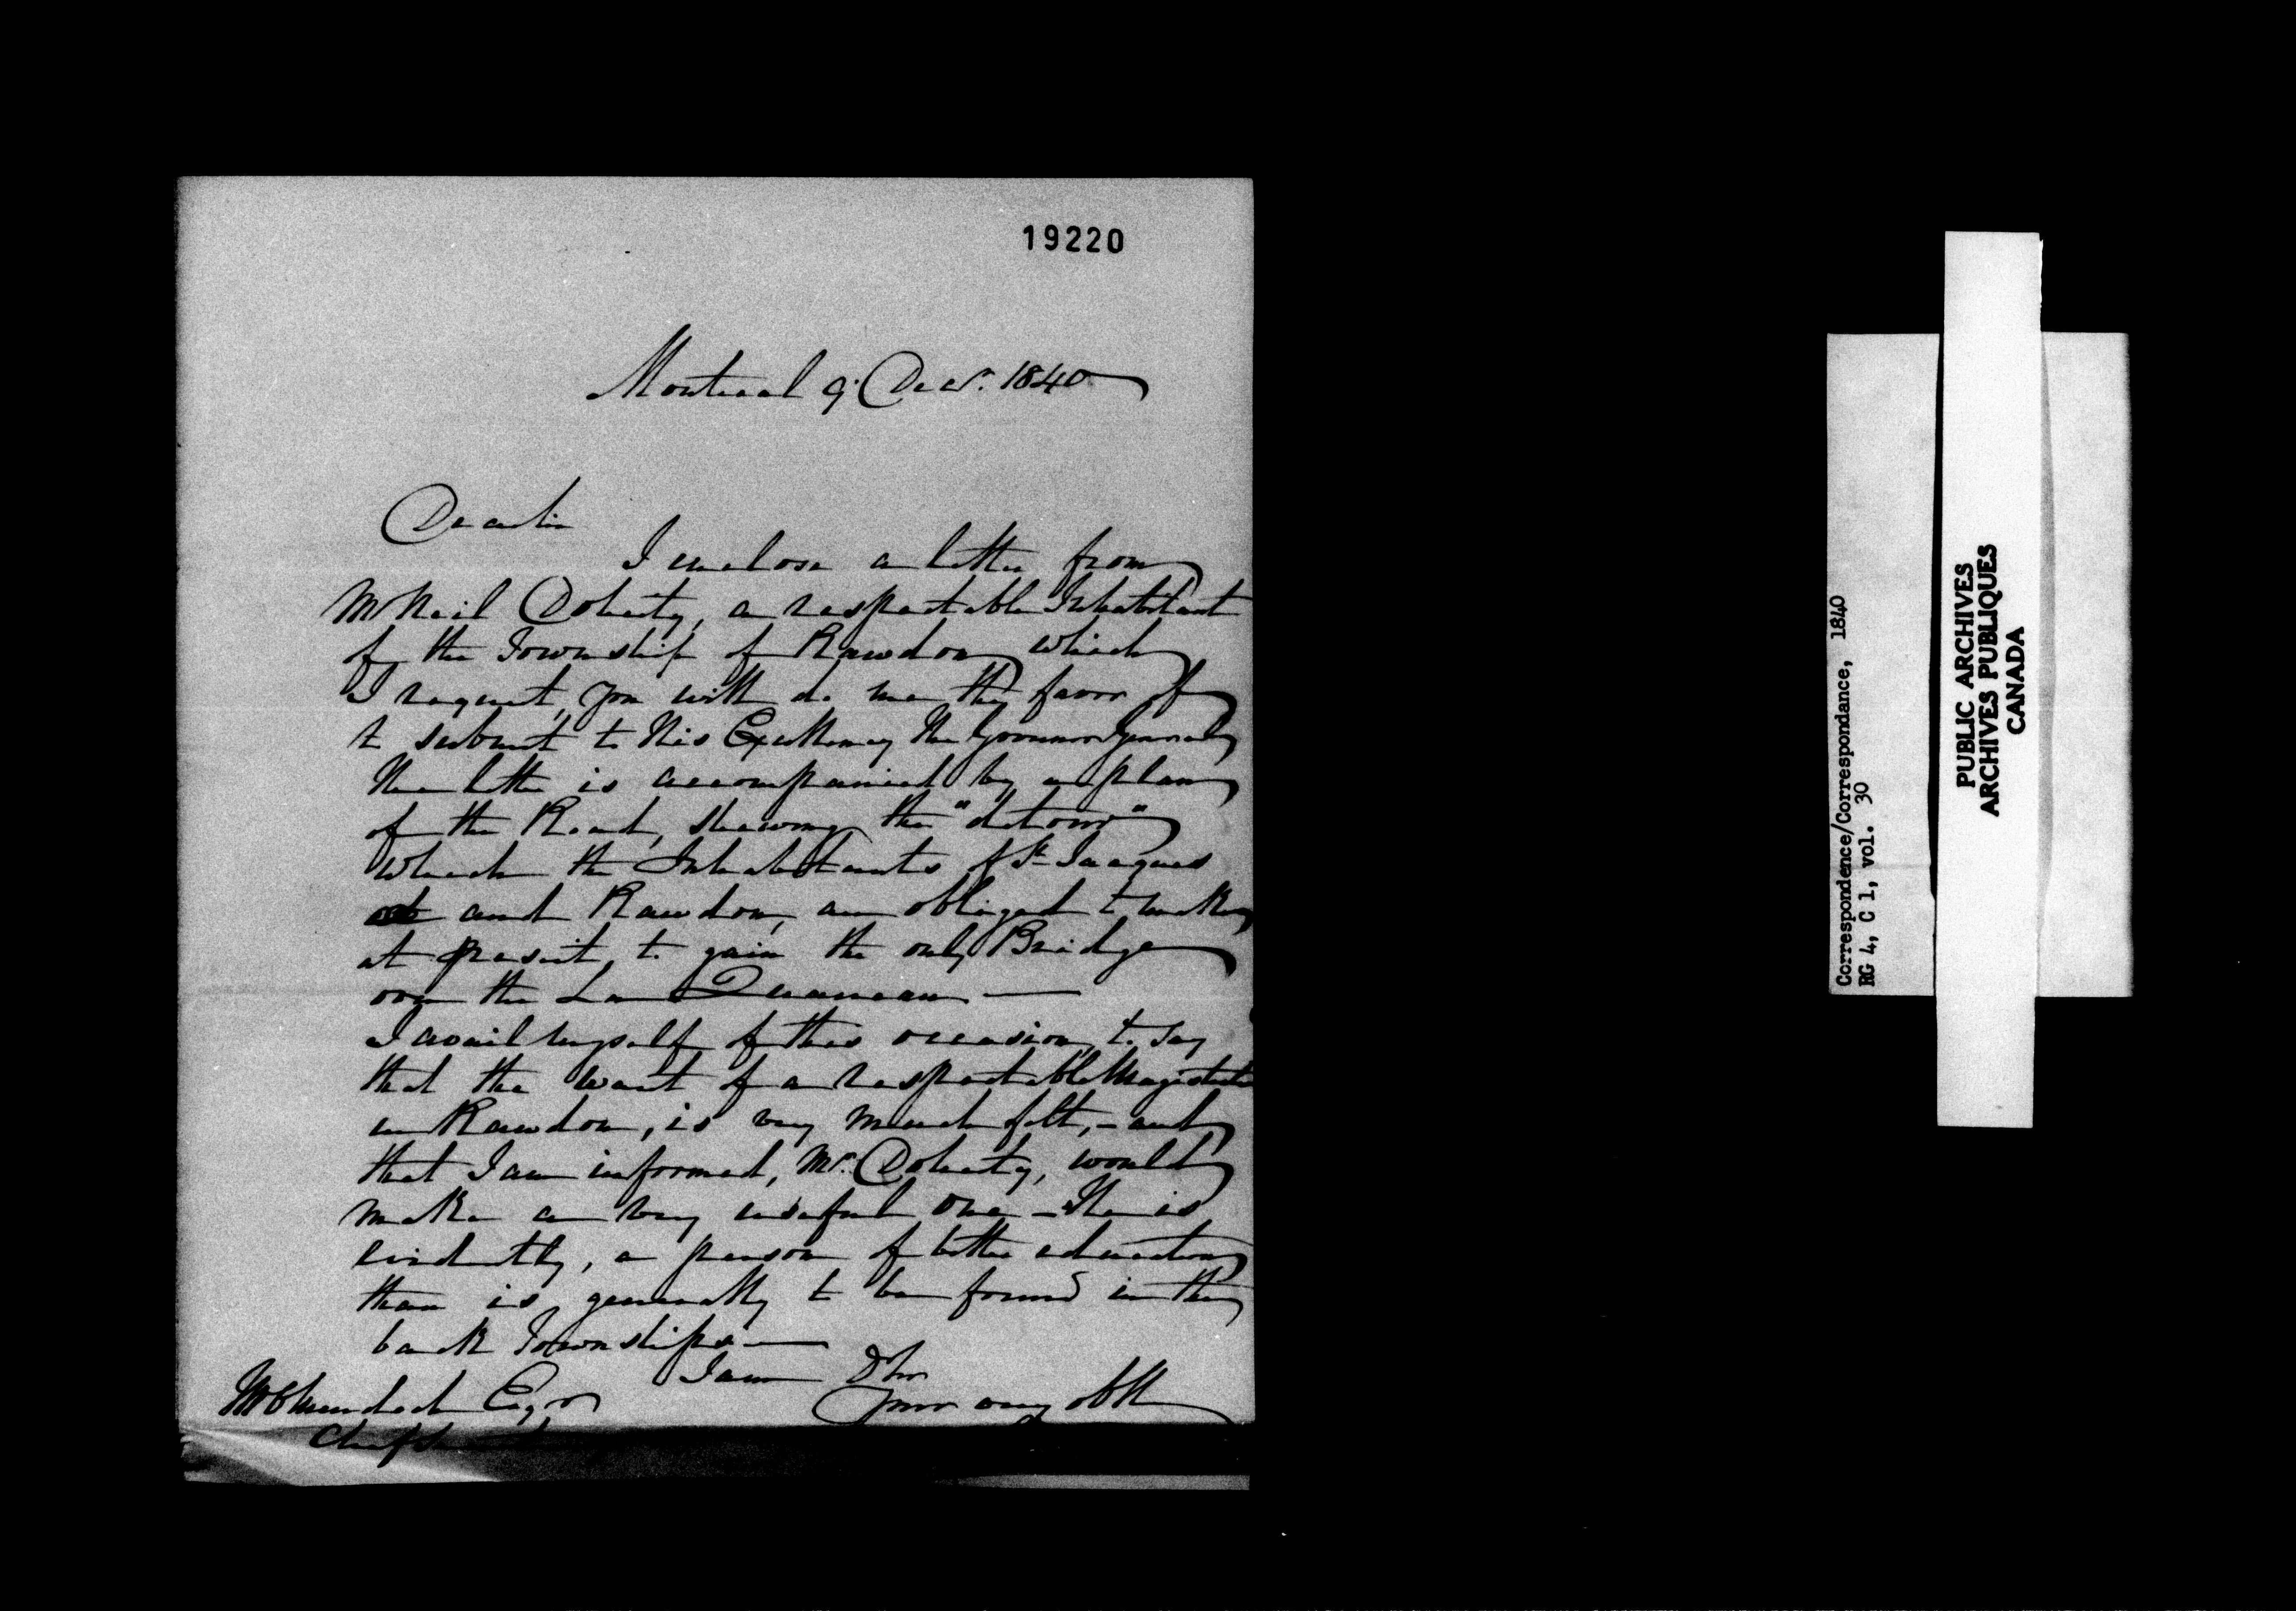 19220
Montreal 9 Decr. 1840
Dear Sir
I enclose a letter from
Mr Neil Doherty, a respectable Inhabitant
of the Township of Rawdon which
I request you will do me the favor of
to submit to His Excellency the Governor General
The letter is accompanied by a plan
of the Road, shewing the "detour"
which the Inhabitants of St Jacques
and Rawdon, are obliged to make
at present, to gain the only Bridge
over the Lac Ouareau —
I avail myself of this occasion, to say
that the want of a respectable Magistrate
in Rawdon, is very much felt, – and
that I am informed, Mr. Doherty, would
make a very useful one – He is
evidently, a person of better education
than is generally to be found in the
back Townships —
I am D Sir
Your very obt
Murdoch Esqr
Chief
Correspondence/Correspondance, 1840
RG 4, C 1, vol. 30
PUBLIC ARCHIVES
ARCHIVES PUBLIQUES
CANADA